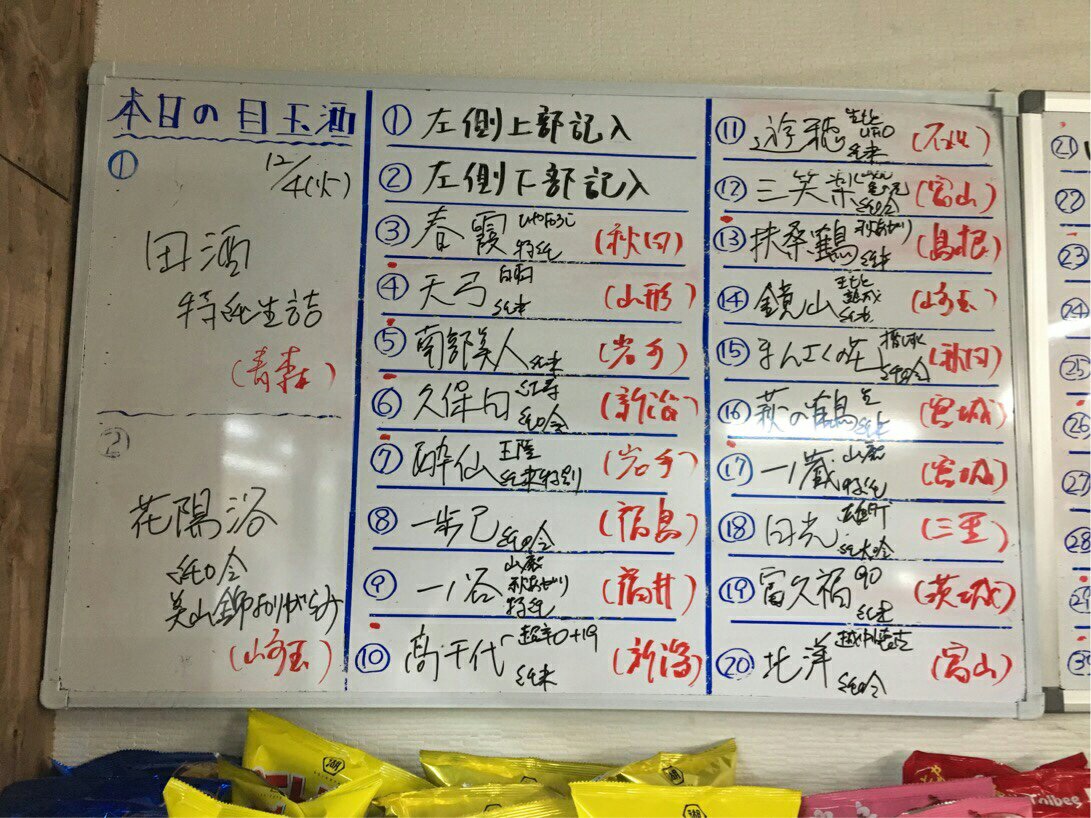 本日の目玉酒
①
12/4(火)
田酒
特純生詰
(青森)
②
花陽浴
純吟
美山錦
(埼玉)
① 左側上部記入
② 左側下部記入
③ 春霞 ひやおろし 特純 (秋田)
④ 天弓 純米 (山形)
⑤ 南部美人 純米 (岩手)
⑥ 久保田 紅寿 純吟 (新潟)
⑦ 酔仙 純米特別 (岩手)
⑧ 一歩己 純吟 (福島)
⑨ 一ノ谷 山廃 秋あがり 特純 (福井)
⑩ 高千代 超辛口+19 純米 (新潟)
⑪ 遊穂 生もと 純米 (石川)
⑫ 三笑楽 純吟 (富山)
⑬ 扶桑鶴 秋あがり 純米 (島根)
⑭ 鏡山 生もと 純米 (埼玉)
⑮ まんさくの花 純吟 (秋田)
⑯ 萩の鶴 (宮城)
⑰ 一ノ蔵 山廃 特純 (宮城)
⑱ 日光 純大吟 (三重)
⑲ 富久福 90 純米 (茨城)
⑳ 北洋 純吟 (富山)
㉑
㉒
㉓
㉔
㉕
㉖
㉗
㉘
㉙
㉚
湖
湖
湖